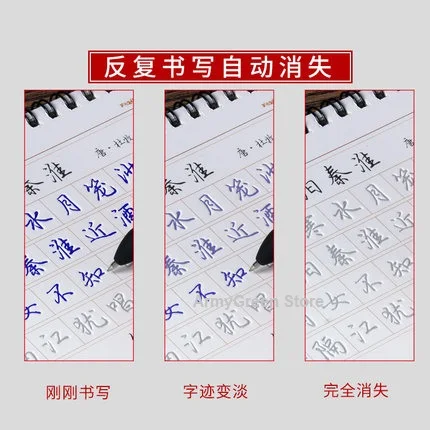 反复书写自动消失
秦淮
唐·杜牧
水月笼
淮近酒
秦
不知
江犹唱
秦淮
唐·杜牧
水月笼
淮近酒
秦
不知
江犹唱
秦淮
唐·杜
寒水月
秦淮近
女不知
隔江犹
ArmyGreen Store
刚刚书写
字迹变淡
完全消失